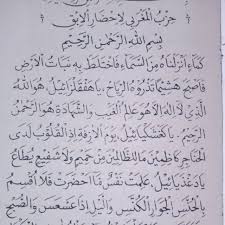 حزب المغربي لاحضار الآبق
بِسْمِ اللهِ الرَّحْمٰنِ الرَّحِيْمِ
كَمَاءٍ اَنْزَلْنَاهُ مِنَ السَّمَآءِ فَاخْتَلَطَ بِهٖ نَبَاتُ الْاَرْضِ
فَاَصْبَحَ هَشِيْمًا تَذْرُوهُ الرِّيَاحُ هُوَ اللهُ
الَّذِيْ لَا اِلٰهَ اِلَّا هُوَ عَالِمُ الْغَيْبِ وَالشَّهَادَةِ هُوَ الرَّحْمٰنُ
الرَّحِيْمُ يَوْمَ الْاٰزِفَةِ اِذِ الْقُلُوْبُ لَدَى
الْحَنَاجِرِ كَاظِمِيْنَ مَا لِلظَّالِمِيْنَ مِنْ حَمِيْمٍ وَلَا شَفِيْعٍ يُطَاعُ
عَلِمَتْ نَفْسٌ مَا اَحْضَرَتْ فَلَا اُقْسِمُ
بِالْخُنَّسِ الْجَوَارِ الْكُنَّسِ وَالَّيْلِ اِذَا عَسْعَسَ وَالصُّبْحِ